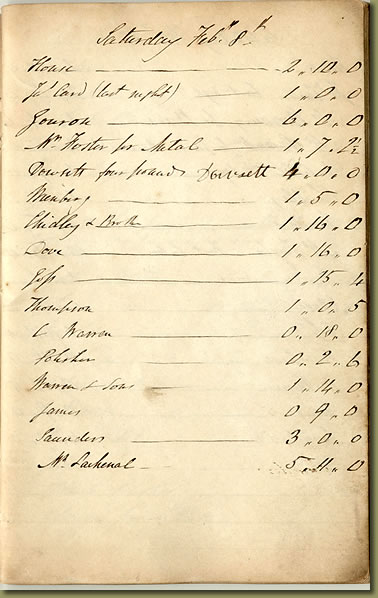 Saturday Feb.y 8th
House 2 " 10 " 0
Jos Card (last night) 1 " 0 " 0
Jouron 6 " 0 " 0
Mr Forster for Metal 1 " 7 " 2½
Dowsett four pounds Dowsett 4 " 0 " 0
Nienberg 1 " 5 " 0
Chidley & Broth 1 " 16 " 0
Dove 1 " 16 " 0
Goss 1 " 15 " 4
Thompson 1 " 0 " 5
C Warren 0 " 18 " 0
Polisher 0 " 2 " 6
Warren & Sons 1 " 14 " 0
James 0 9 " 0
Saunders 3 " 0 " 0
Mr Lachenal 5 " 4 " 0